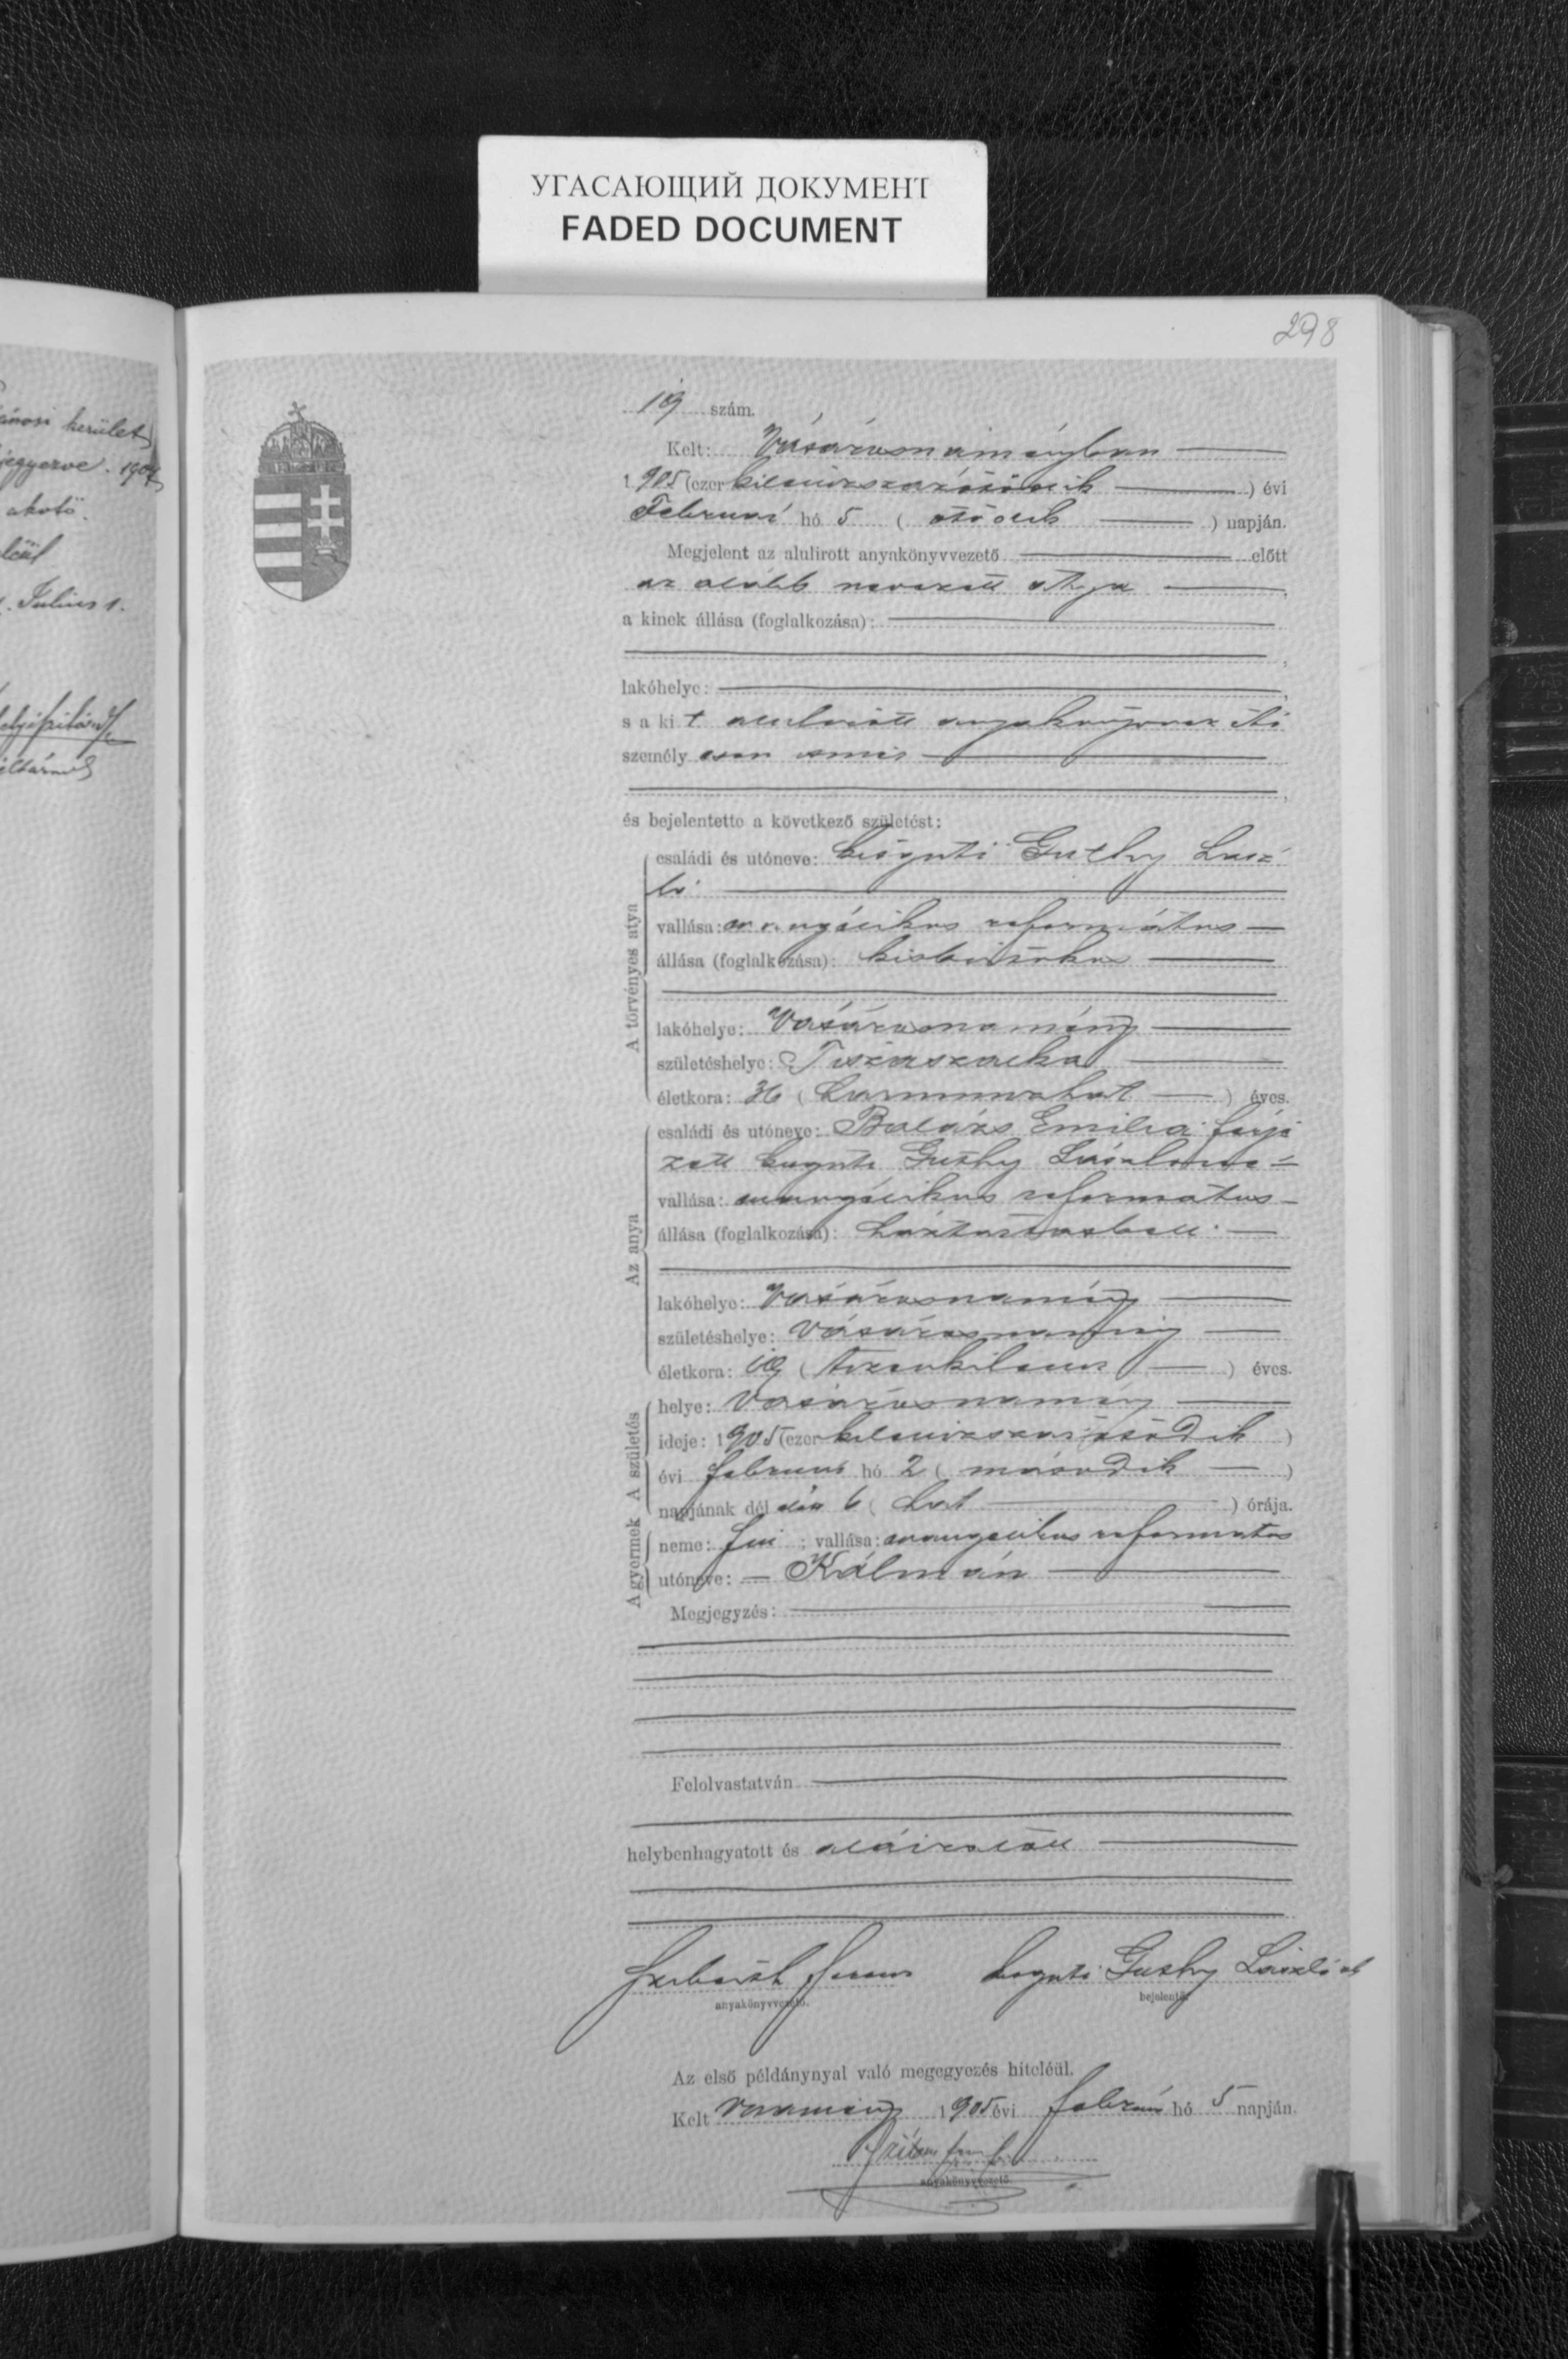 УГАСАЮЩИЙ ДОКУМЕНТ
FADED DOCUMENT
298
kerület
1904
Julius 1.
19 szám.
Kelt: Vásárosnaményban
1 905 (ezer kilenczszázötödik ) évi
Februári hó 5 ( ötödik ) napján.
Megjelent az alulirott anyakönyvvezető előtt
az alább nevezett atya ,
a kinek állása (foglalkozása):
lakóhelye:
s a ki t alulirott anyakönyvvezető
személyesen ismer
és bejelentette a következő születést:
A törvényes atya
családi és utóneve: kisguti Guthy Lász
ló
vallása: evangélikus református
állása (foglalkozása): kisbirtokos
lakóhelye: Vásárosnamény
születéshelye: Tiszaszalka
életkora: 36 ( harminczhat ) éves.
Az anya
családi és utóneve: Balázs Emilia férje
zett kisguti Guthy Lászlóné
vallása: evangélikus református
állása (foglalkozása): háztartásbeli
lakóhelye: Vásárosnamény
születéshelye: Vásárosnamény
életkora: 19 ( tizenkilencz ) éves.
A születés
helye: Vásárosnamény
ideje: 1 905 (ezer kilenczszázötödik )
évi februári hó 2 ( második )
napjának dél előtt 6 ( hat ) órája.
A gyermek
neme: fiú ; vallása: evangelikus reformatus
utóneve: Kálmán
Megjegyzés:
Felolvastatván
helybenhagyatott és aláiratott
Ferencz kisguti Guthy László
anyakönyvvezető. bejelentő.
Az első példánynyal való megegyezés hiteléül.
Kelt Vnamény 1 905 évi február hó 5 napján.
anyakönyvvezető.